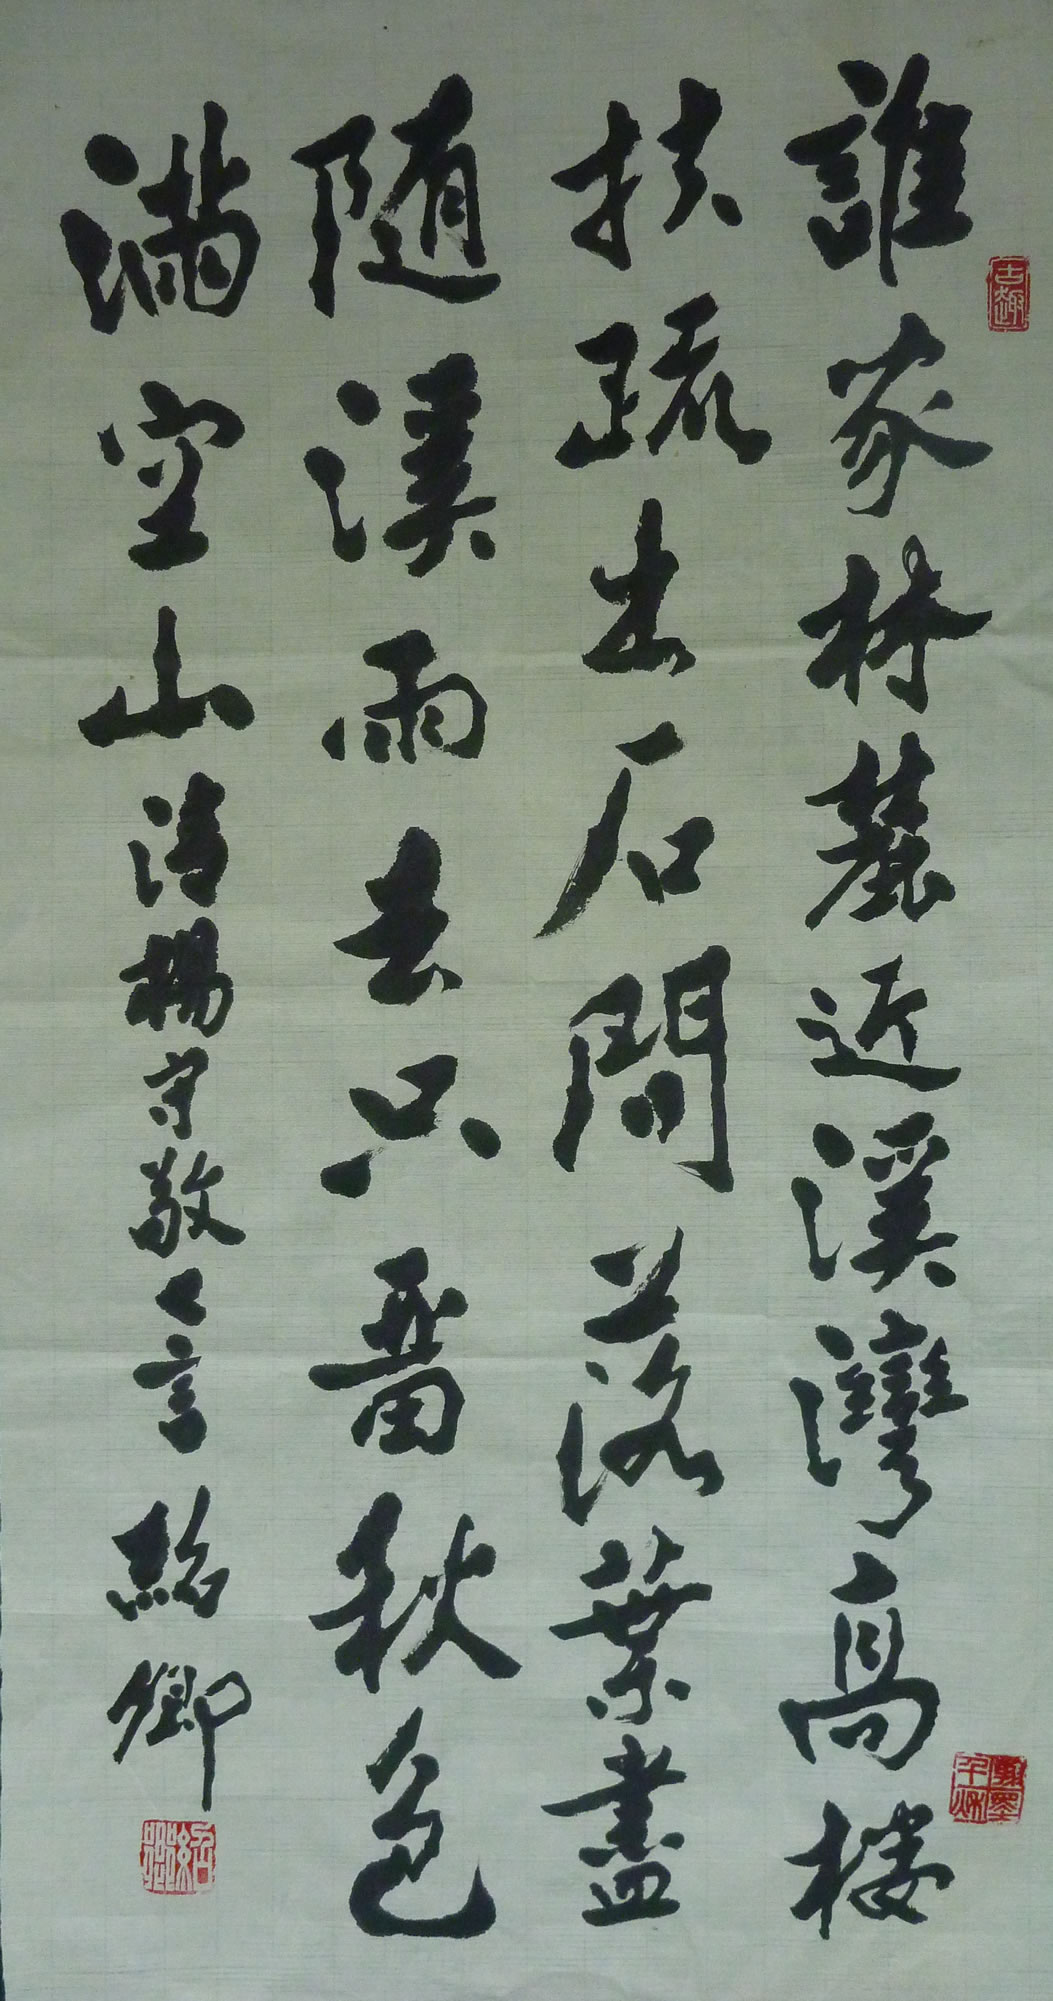 古趣
誰家村麓近溪灣高樓
扶疏出石間落葉盡
随溪雨去只畱秋色
滿空山 清楊守敬之言 紹卿